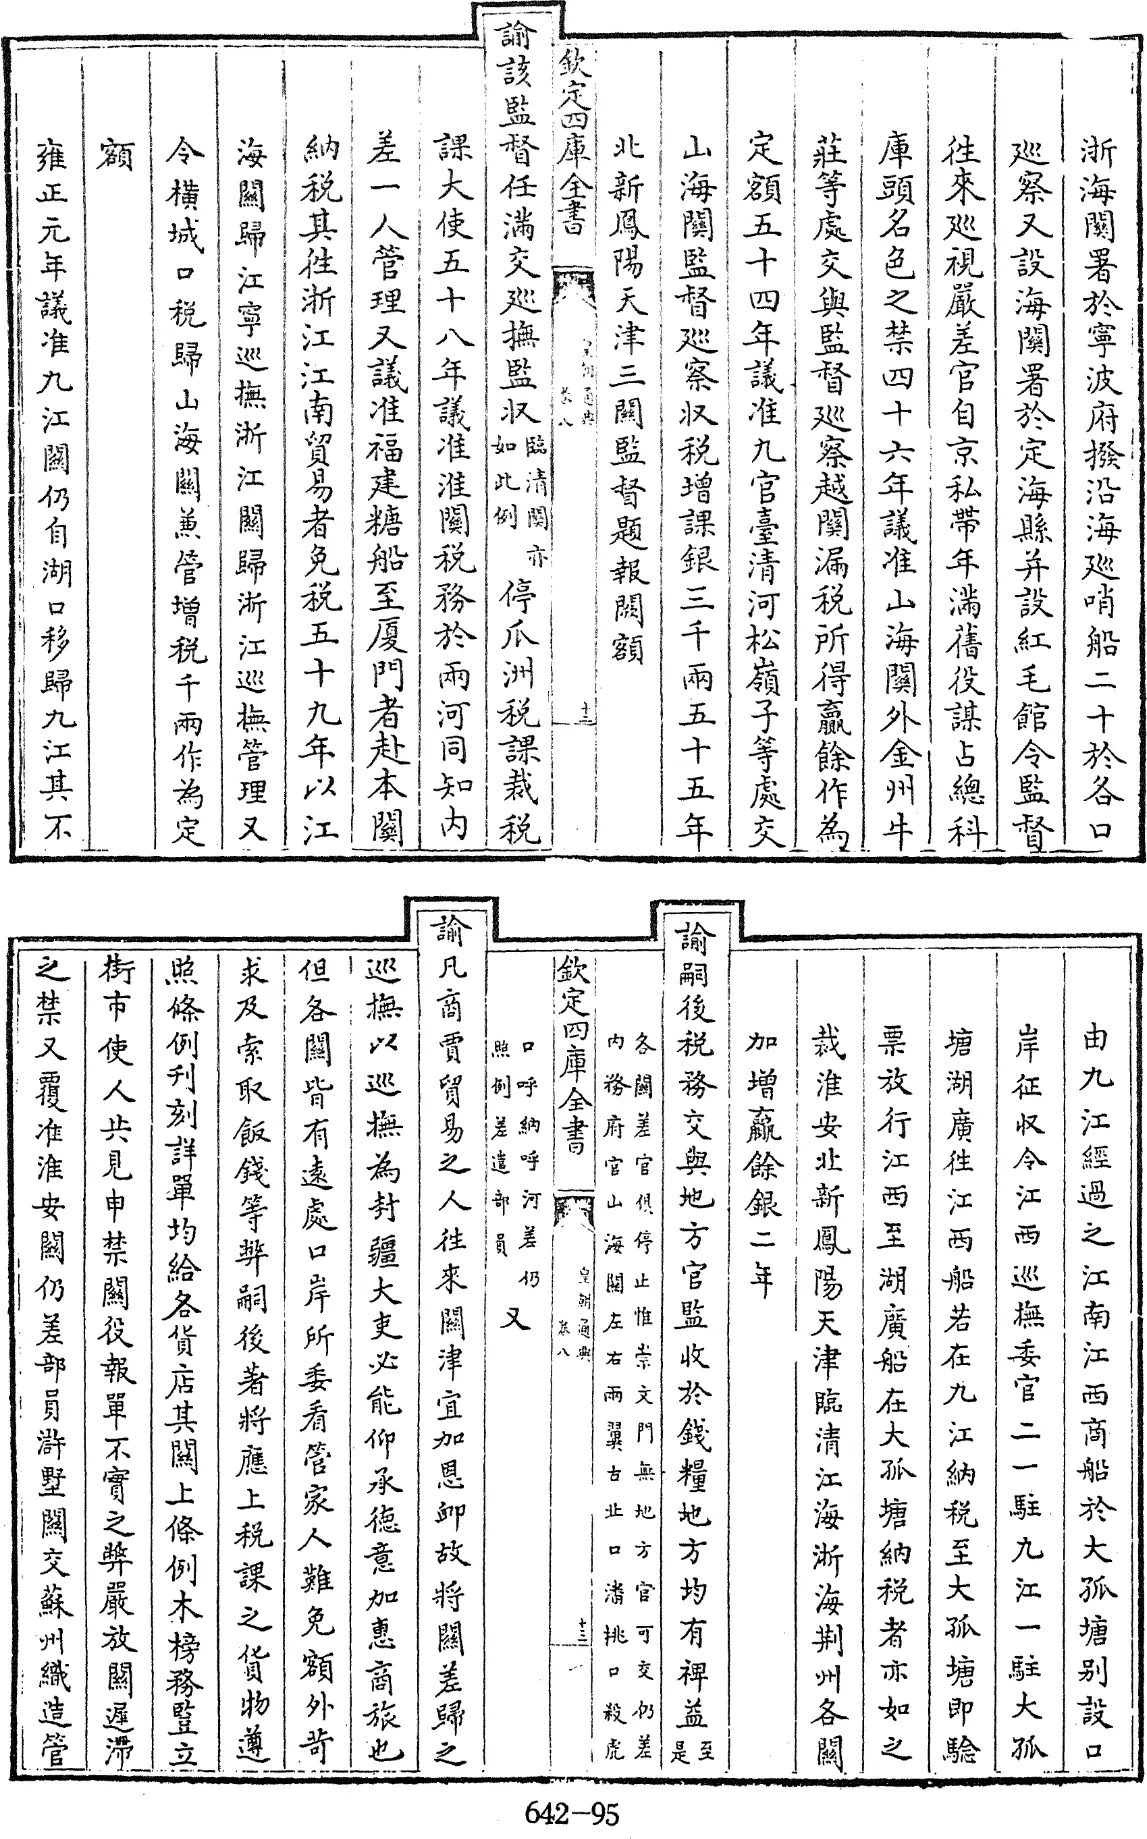 浙海關署於寧波府撥沿海廵哨船二十於各口
廵察又設海關署於定海縣并設紅毛館令監督
徃來廵視嚴差官自京私帶年滿舊役謀占總科
庫頭名色之禁四十六年議准山海關外金州牛
莊等處交與監督廵察越關漏税所得贏餘作為
定額五十四年議准九官臺清河松嶺子等處交
山海關監督廵察収税增課銀三千兩五十五年
北新鳳陽天津三關監督題報闕額
欽定四庫全書
皇朝通典
卷八
十二
諭該監督任滿交廵撫監収臨清關亦如此例停瓜洲税課裁税
課大使五十八年議准淮關税務於兩河同知内
差一人管理又議准福建糖船至厦門者赴本關
納税其徃浙江江南貿易者免税五十九年以江
海關歸江寧廵撫浙江關歸浙江廵撫管理又
令橫城口税歸山海關兼管增税千兩作為定
額
雍正元年議准九江關仍自湖口移歸九江其不
由九江經過之江南江西商船於大孤塘别設口
岸征収令江西廵撫委官二一駐九江一駐大孤
塘湖廣徃江西船若在九江納税至大孤塘即驗
票放行江西至湖廣船在大孤塘納税者亦如之
裁淮安北新鳳陽天津臨清江海浙海荆州各關
加增贏餘銀二年
諭嗣後税務交與地方官監收於錢糧地方均有裨益至是
各關差官俱停止惟崇文門無地方官可交仍差
内務府官山海關左右兩翼古北口潘桃口殺虎
欽定四庫全書
皇朝通典
卷八
十三
口呼納呼河差仍
照例差遣部員又
諭凡商賈貿易之人徃來關津宜加恩卹故將關差歸之
廵撫以廵撫為封疆大吏必能仰承德意加惠商旅也
但各關皆有遠處口岸所委看管家人難免額外苛
求及索取飯錢等弊嗣後著將應上税課之貨物遵
照條例刊刻詳單均給各貨店其關上條例木榜務豎立
街市使人共見申禁關役報單不實之弊嚴放關遲滯
之禁又覆准淮安關仍差部員滸墅關交蘇州織造管
642-95